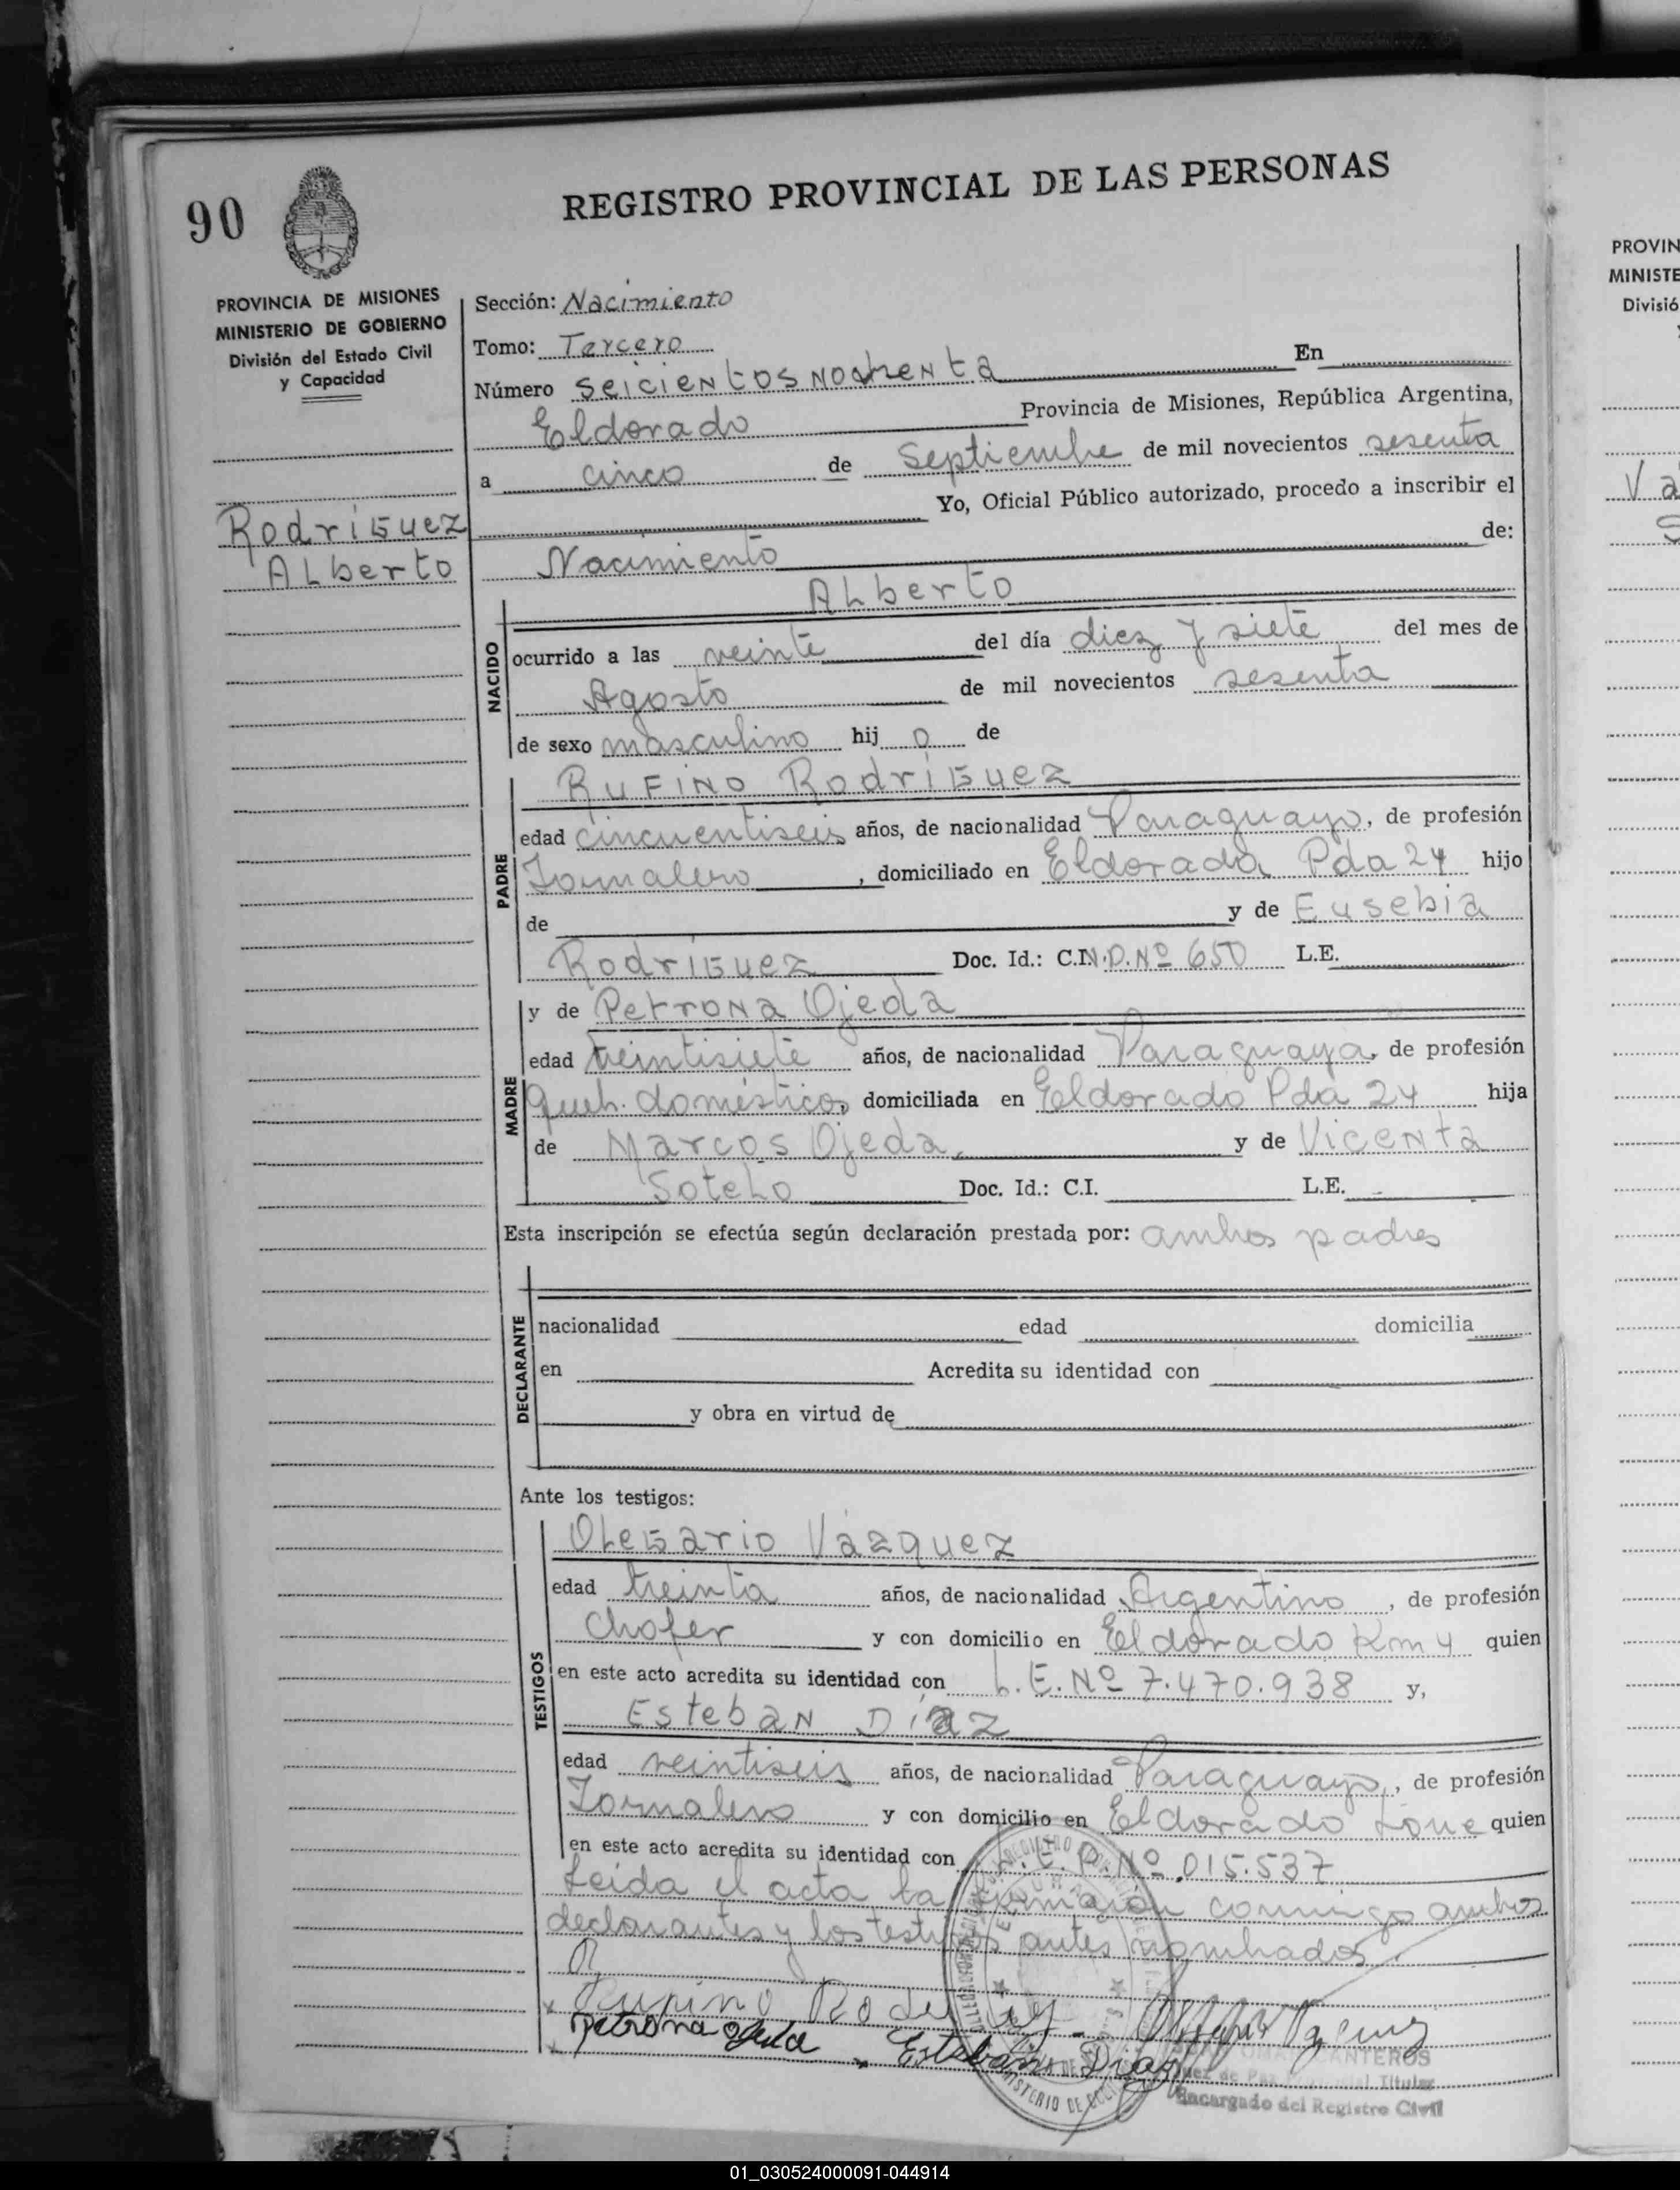 90
REGISTRO PROVINCIAL DE LAS PERSONAS
PROVINCIA DE MISIONES
MINISTERIO DE GOBIERNO
División del Estado Civil
y Capacidad
Rodríguez
Alberto
Sección: Nacimiento
Tomo: Tercero
Número seicientos nochenta En
Eldorado Provincia de Misiones, República Argentina,
a cinco de Septiembre de mil novecientos sesenta
Yo, Oficial Público autorizado, procedo a inscribir el
Nacimiento de:
NACIDO
Alberto
ocurrido a las veinte del día diez y siete del mes de
Agosto de mil novecientos sesenta
de sexo masculino hij o de
PADRE
Rufino Rodríguez
edad cincuentiseis años, de nacionalidad Paraguayo, de profesión
Jornalero, domiciliado en Eldorado Pda 24 hijo
de y de Eusebia
Rodríguez Doc. Id.: C.N.D.Nº 650 L.E.
MADRE
y de Petrona Ojeda
edad treintisiete años, de nacionalidad Paraguaya, de profesión
queh. domésticos, domiciliada en Eldorado Pda 24 hija
de Marcos Ojeda, y de Vicenta
Sotelo Doc. Id.: C.I. L.E.
Esta inscripción se efectúa según declaración prestada por: ambos padres
DECLARANTE
nacionalidad edad domicilia
en Acredita su identidad con
y obra en virtud de
Ante los testigos:
TESTIGOS
Olegario Vázquez
edad treinta años, de nacionalidad Argentino, de profesión
Chofer y con domicilio en Eldorado Km 4 quien
en este acto acredita su identidad con L.E.Nº 7.470.938 y,
Esteban Díaz
edad veintiseis años, de nacionalidad Paraguayo, de profesión
Jornalero y con domicilio en Eldorado quien
en este acto acredita su identidad con Nº 015.537
Leida el acta la firmaron conmigo ambos
declarantes y los testigos antes nombrados
Rufino
Petrona Ojeda Esteban Diaz
Juez de Paz Titular
Encargado del Registro Civil
PROVIN
MINISTE
Divisió
Va
S
01_030524000091-044914